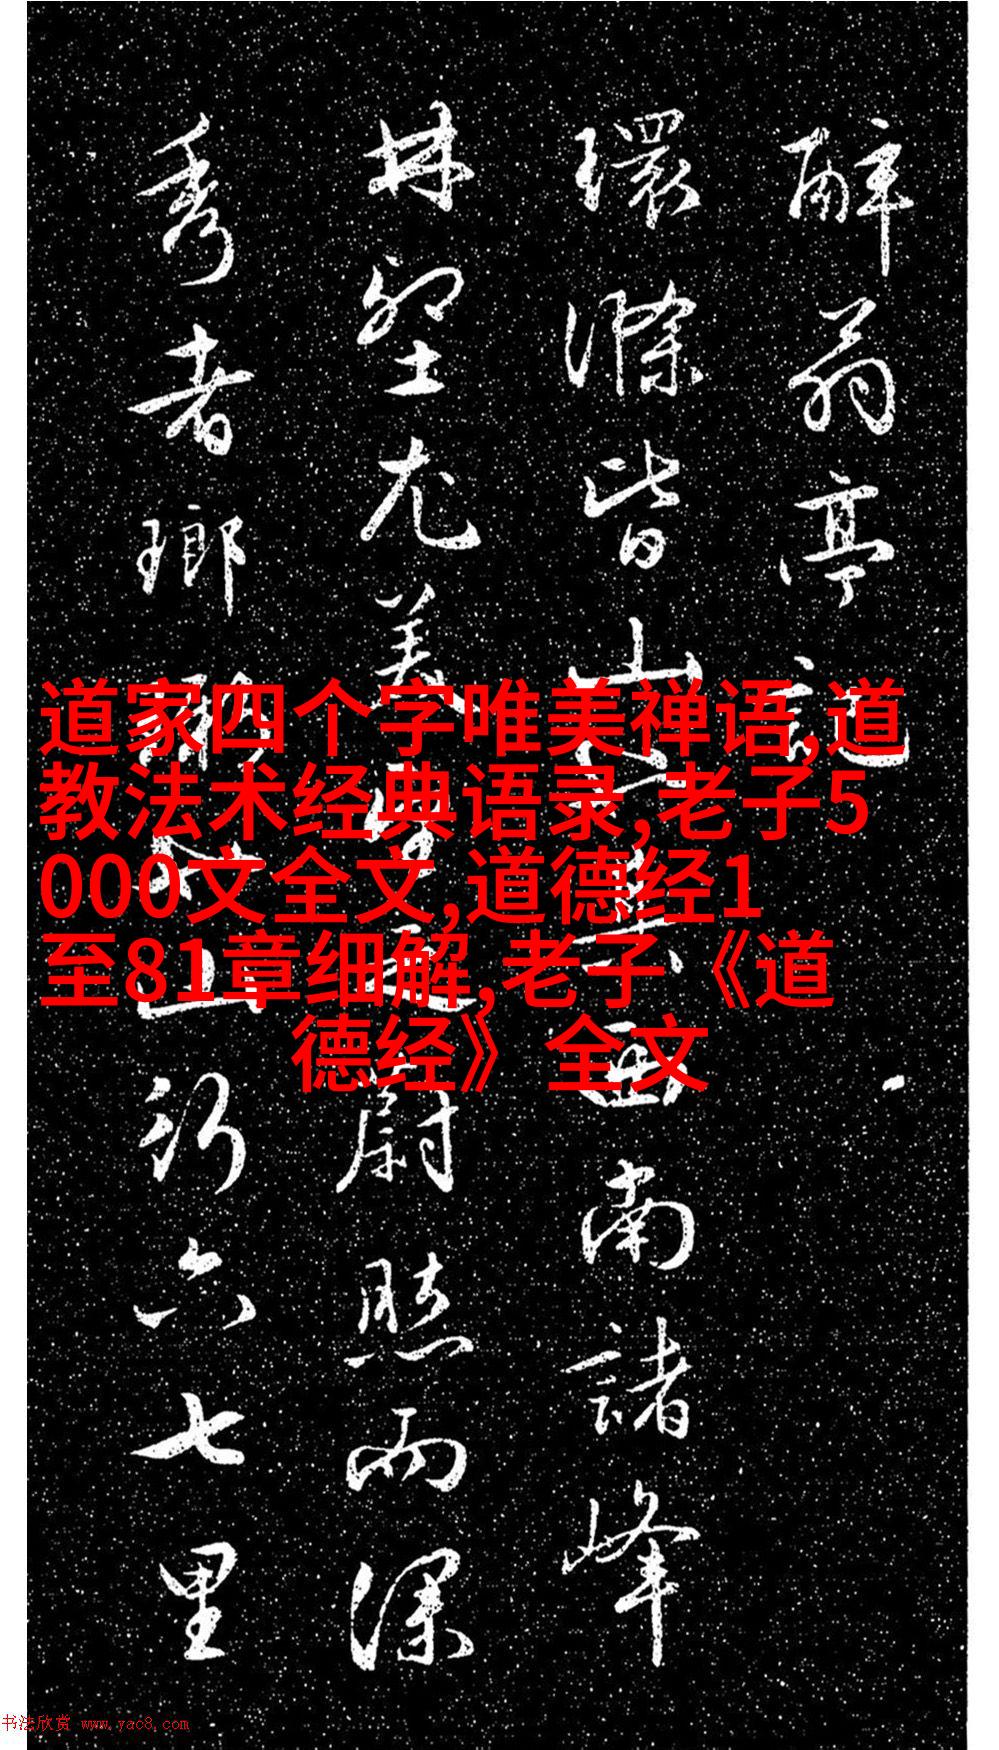 醉翁亭記
環滁皆山也其西南諸峰
林壑尤美望之蔚然而深
秀者瑯琊也山行六七里
道家四个字唯美禅语,道
教法术经典语录,老子5
000文全文,道德经1
至81章细解,老子《道
德经》全文
书法欣赏 www.yac8.com